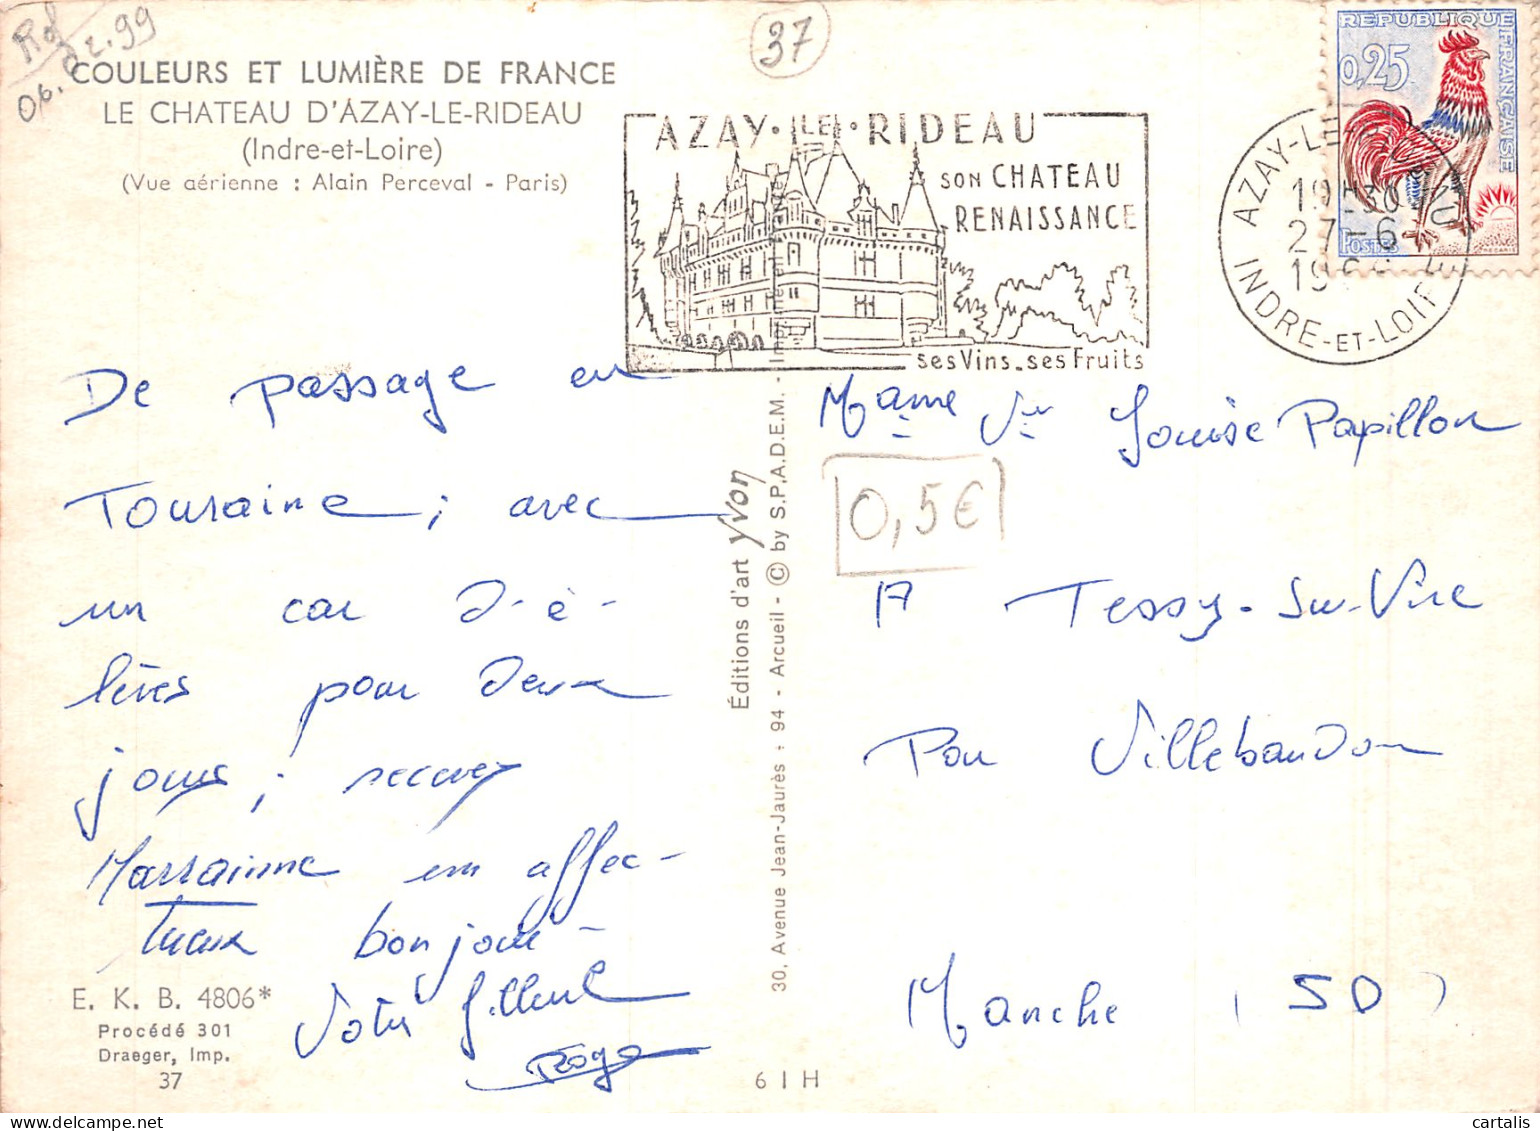 Rd
06.02.99
37
COULEURS ET LUMIÈRE DE FRANCE
LE CHATEAU D'AZAY-LE-RIDEAU
(Indre-et-Loire)
(Vue aérienne : Alain Perceval - Paris)
AZAY·LE·RIDEAU
SON CHATEAU
RENAISSANCE
ses Vins. ses Fruits
AZAY-LE-RIDEAU
19H30
27-6
INDRE-ET-LOIRE
REPUBLIQUE FRANÇAISE
0,25
POSTES
De passage en
Touraine ; avec
un car d'é-
lèves pour deux
jours ; recevez
Marraine un affec-
tueux bonjour -
Votre filleul
Roger
Éditions d'art yvon
30, Avenue Jean-Jaurès - 94 - Arcueil - © by S.P.A.D.E.M. - Imprimé en France
Mame Vve Louise Papillon
0,5€
à Tessy-Sur-Vire
Par Villebaudon
Manche (50)
E. K. B. 4806*
Procédé 301
Draeger, Imp.
37
6 I H
cartalis